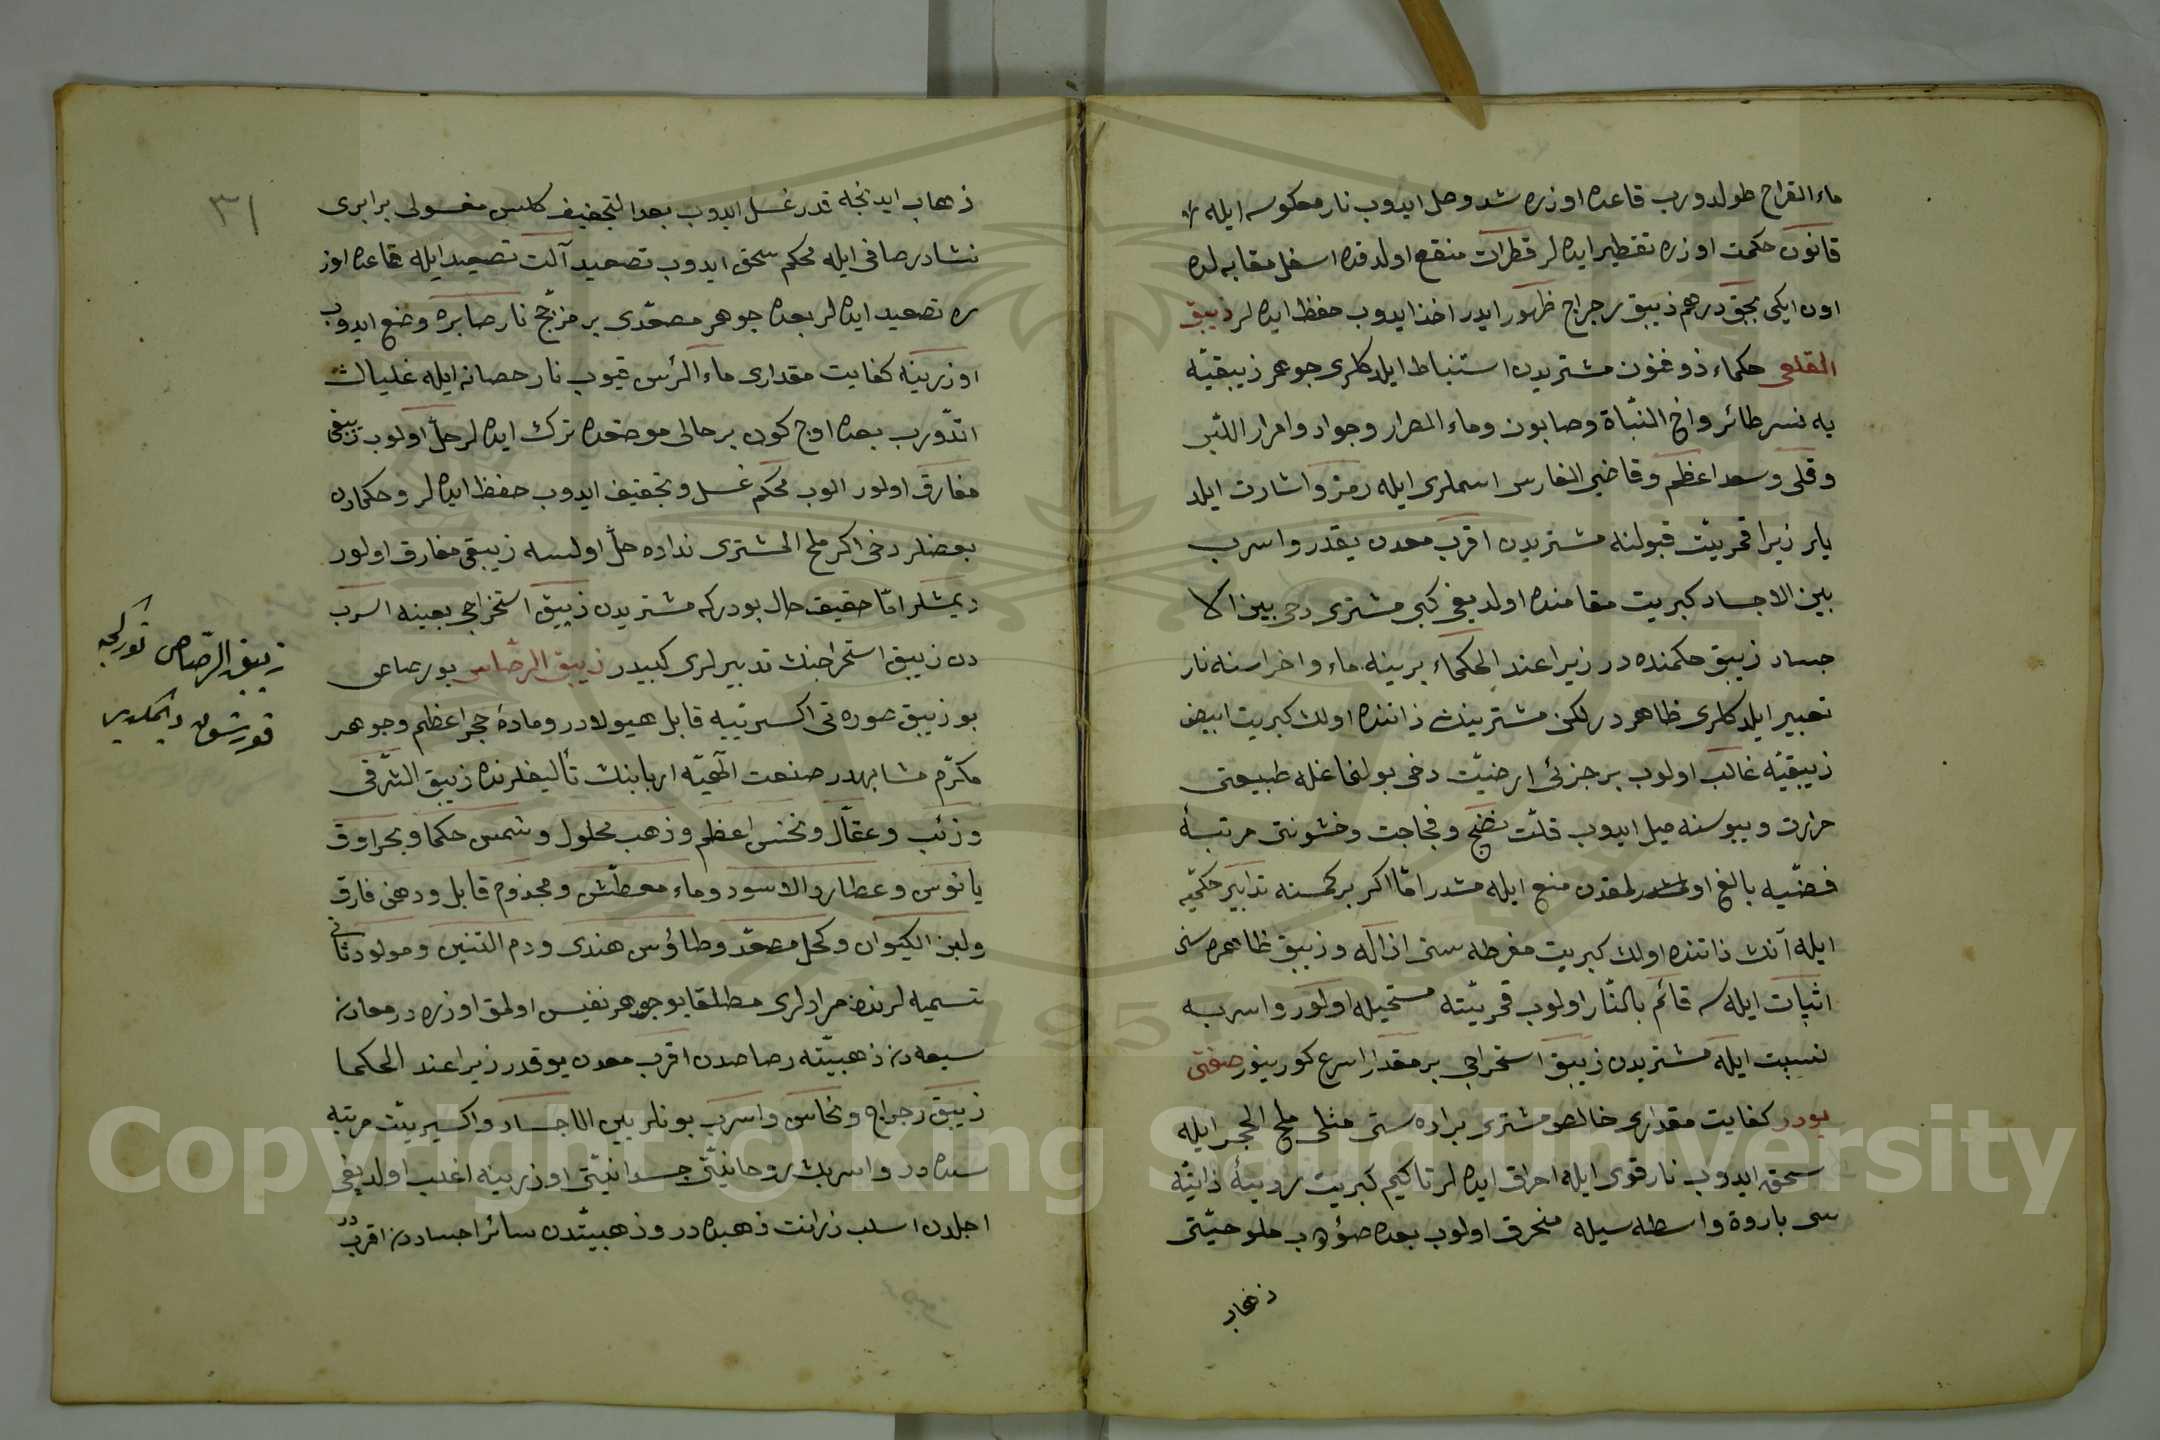 ماء القراح طولدورب قاعده اوزره شد وصل ايدوب نار معكوسه ايله
قانون حكمت اوزره تقطير ايده لر قطرات منقع اولدقده اسفل مقابله ده
اون ايكى بچق درهم زيبق رجراج ظهور ايدر اخذ ايدوب حفظ ايده لر زيبق
القلعى حكماء ذو فنون مشتريدن استنباط ايلدكلرى جوهر زيبقيه
يه نسر طائر واخ النباة وصابون وماء المرار وجواد وامرار اللبن
وقلى وسعد اعظم وقاضى الفارس اسملرى ايله رمز واشارت ايلد
يلر زيرا قمريت قبولنه مشتريدن اقرب معدن يوقدر واسرب
بين الاجساد كبريت مقامنده اولديغى كبى مشترى دخى بين الا
جساد زيبق حكمنده در زيرا عند الحكماء برينه ماء واخراسنه نار
تعبير ايلدكلرى ظاهر در لكن مشترينك ذاتنده اولان كبريت ابيض
زيبقيه غالب اولوب بر جزئى ارضيت دخى بولنمغله طبيعتى
حرارت ويبوسته ميل ايدوب قلت نضج وفجاجت وخشونتى مرتبۀ
فضيه بالغ اولمقدن منع ايله مشدر اما اكر بر كمسنه تدابير حكميه
ايله آنك ذاتنده اولان كبريت مفرطه سنى ازاله وزيبق ظاهره سنى
اثبات ايله سه قائم بالنار اولوب قمريته مستحيله اولور واسربه
نسبت ايله مشتريدن زيبق استخراجى بر مقدار اسرع كورينور صفتى
بودر كفايت مقدارى خالص مشترى براده سنى مثلى ملح الحجر ايله
سحق ايدوب نار قوى ايله احراق ايده لر تاكيم كبريت رديئۀ ذاتيه
سى باروة واسطه سيله منحرق اولوب بعده صؤيوب ملوحيتى
ذهاب
٣١
ذهاب ايدنجه قدر غسل ايدوب بعد التجفيف كلس مغسولى برابرى
نشادر صافى ايله محكم سحق ايدوب تصعيد آلت تصعيد ايله قاعده اوز
ره تصعيد ايده لر بعده جوهر مصعدى بر مزجج نار صابره وضع ايدوب
اوزرينه كفايت مقدارى ماء الرأس قيوب نار حصانه ايله غليان
اتدورب بعده اوج كون بر حالى موضعده ترك ايده لر حل اولوب زيبقى
مفارق اولور الوب محكم غسل وتجفيف ايدوب حفظ ايده لر وحكمادن
بعضلر دخى اكر ملح المشترى نداده حل اولسه زيبقى مفارق اولور
ديمشلر اما حقيقت حال بودركه مشتريدن زيبق استخراجى بعينه اسرب
دن زيبق استخراجنك تدبيرلرى كبيدر زيبق الرصاص بو رصاص
بو زيبق صوره تى اكسيرتيه قابل هيولادر ومادۀ حجر اعظم وجوهر
مكرم مشابهدر صنعت آلهيه اربابنك تأليفلرنده زيبق الشرقى
وزئب وعقال ونحس اعظم وذهب محلول وشمس حكما وبحر اوق
يانوس وعطارد الاسود وماء معطش ومجذوم قابل ودهن فارق
ولبن الكيوان وكحل مصعد وطاؤس هندى ودم التنين ومولود ثانى
تسميه لرنده مرادلرى مطلقا بو جوهر نفيس اولمق اوزره در معادن
سبعه دن ذهبيته رصاصدن اقرب معدن يوقدر زيرا عند الحكما
زيبق رجراج ونحاس واسرب بونلر بين الاجساد واكسيريت مرتبه
سنده در واسربك روحانيتى جسدانيتى اوزرينه اغلب اولديغى
اجلدن اسلب زرانت ذهبده در وذهبيتدن سائر اجسادن اقرب در
زيبق الرصاص توركجه
قورشون ديمكدر